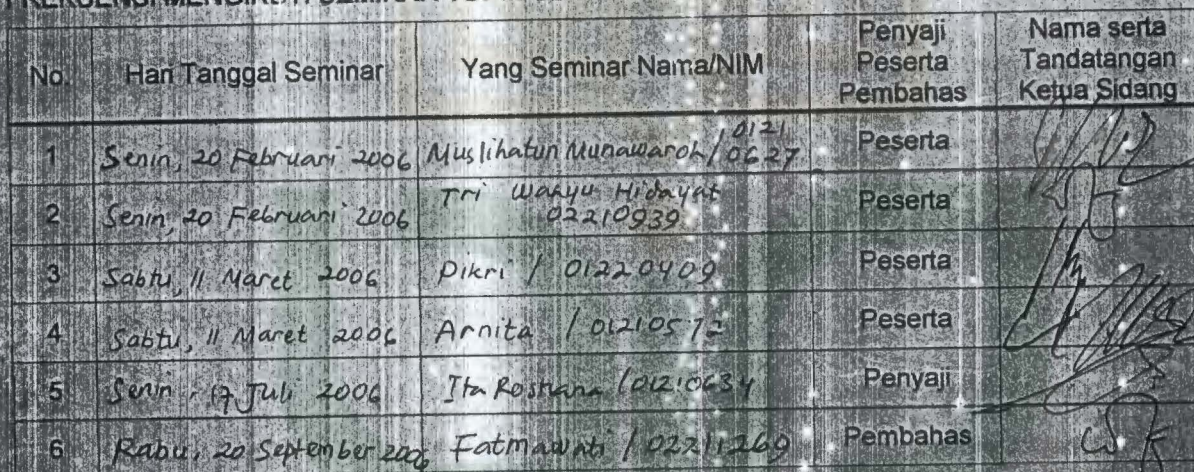 No. Hari Tanggal Seminar Yang Seminar Nama/NIM Penyaji Peserta Pembahas Nama serta Tandatangan Ketua Sidang
1 Senin, 20 Februari 2006 Muslihatun Munawaroh / 0121 0627 Peserta
2 Senin, 20 Februari 2006 Tri Wahyu Hidayat 02210939 Peserta
3 Sabtu, 11 Maret 2006 Dikri / 01220409 Peserta
4 Sabtu, 11 Maret 2006 Arnita / 01210572 Peserta
5 Senin, 17 Juli 2006 Ita Roshana / 01210634 Penyaji
6 Rabu, 20 September 2006 Fatmawati / 02211269 Pembahas